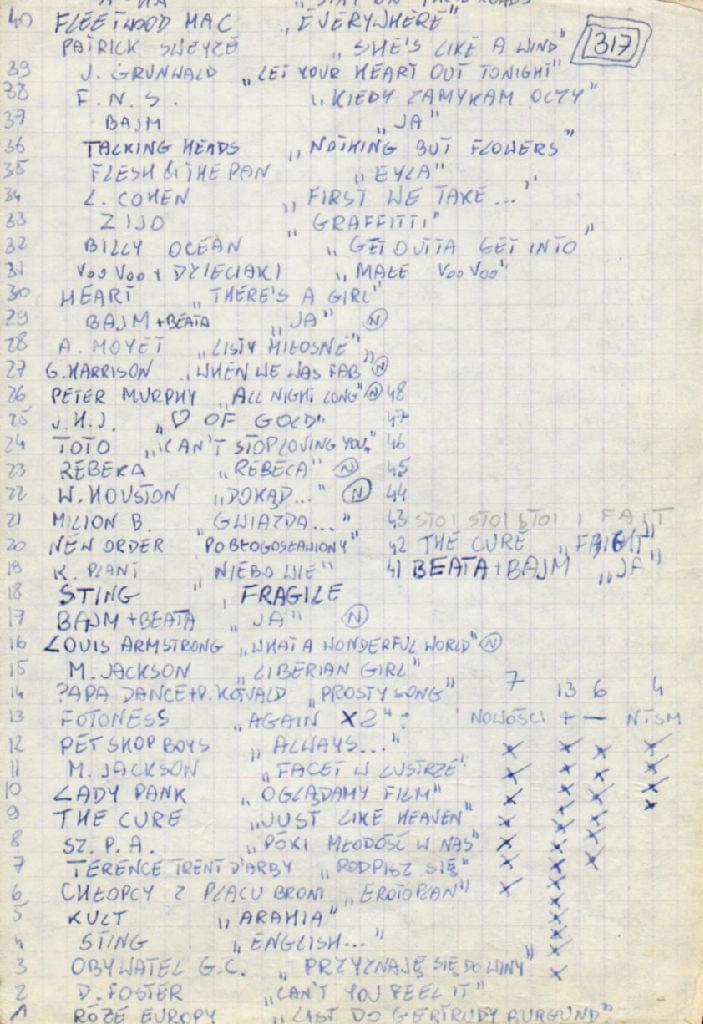 40 FLEETWOOD MAC „EVERYWHERE"
PATRICK SWEYZE „SHE'S LIKE A WIND" 317
39 J. GRUNWALD „LET YOUR HEART OUT TONIGHT"
38 F.N.S. „KIEDY ZAMYKAM OCZY"
37 BAJM „JA"
36 TALKING HEADS „NOTHING BUT FLOWERS"
35 FLESH & THE PAN „EYLA"
34 L. COHEN „FIRST WE TAKE..."
33 ZIJO „GRAFFITTI"
32 BILLY OCEAN „GET OUTTA GET INTO"
31 VOO VOO + DZIECIAKI „MAŁE VOO VOO"
30 HEART „THERE'S A GIRL"
29 BAJM + BEATA „JA" N
28 A. MOYET „LISTY MIŁOSNE"
27 G. HARRISON „WHEN WE WAS FAB" N
26 PETER MURPHY „ALL NIGHT LONG" N 48
25 J.H.J. „♡ OF GOLD" 47
24 TOTO „CAN'T STOP LOVING YOU" 46
23 REBEKA „REBECA" N 45
22 W. HOUSTON „DOKĄD..." N 44
21 MILION B. „GWIAZDA..." 43 STOI STOI STOI I FAJT
20 NEW ORDER „POBŁOGOSŁAWIONY" 42 THE CURE
19 R. PLANT „NIEBO WIE" 41 BEATA + BAJM „JA"
18 STING „FRAGILE
17 BAJM + BEATA „JA" N
16 LOUIS ARMSTRONG „WHAT A WONDERFUL WORLD" N
15 M. JACKSON „LIBERIAN GIRL" 7
14 PAPA DANCE + P. KOWALD „PROSTY SONG" 13 6 4
13 FOTONESS „AGAIN X2": NOWOŚCI + — NTSM
12 PET SHOP BOYS „ALWAYS..." x x x x
11 M. JACKSON „FACET W LUSTRZE" x x x x
10 LADY PANK „OGLĄDAMY FILM" x x x x
9 THE CURE „JUST LIKE HEAVEN" x x x
8 SZ. P. A. „PÓKI MŁODOŚĆ W NAS" x x x
7 TERENCE TRENT D'ARBY „PODPISZ SIĘ" x x x
6 CHŁOPCY Z PLACU BRONI „EROTOPLAN" x x
5 KULT „ARAHJA" x
4 STING „ENGLISH..." x
3 OBYWATEL G.C. „PRZYZNAJĘ SIĘ DO WINY" x
2 D. FOSTER „CAN'T YOU FEEL IT"
1 RÓŻE EUROPY „LIST DO GERTRUDY BURGUND"